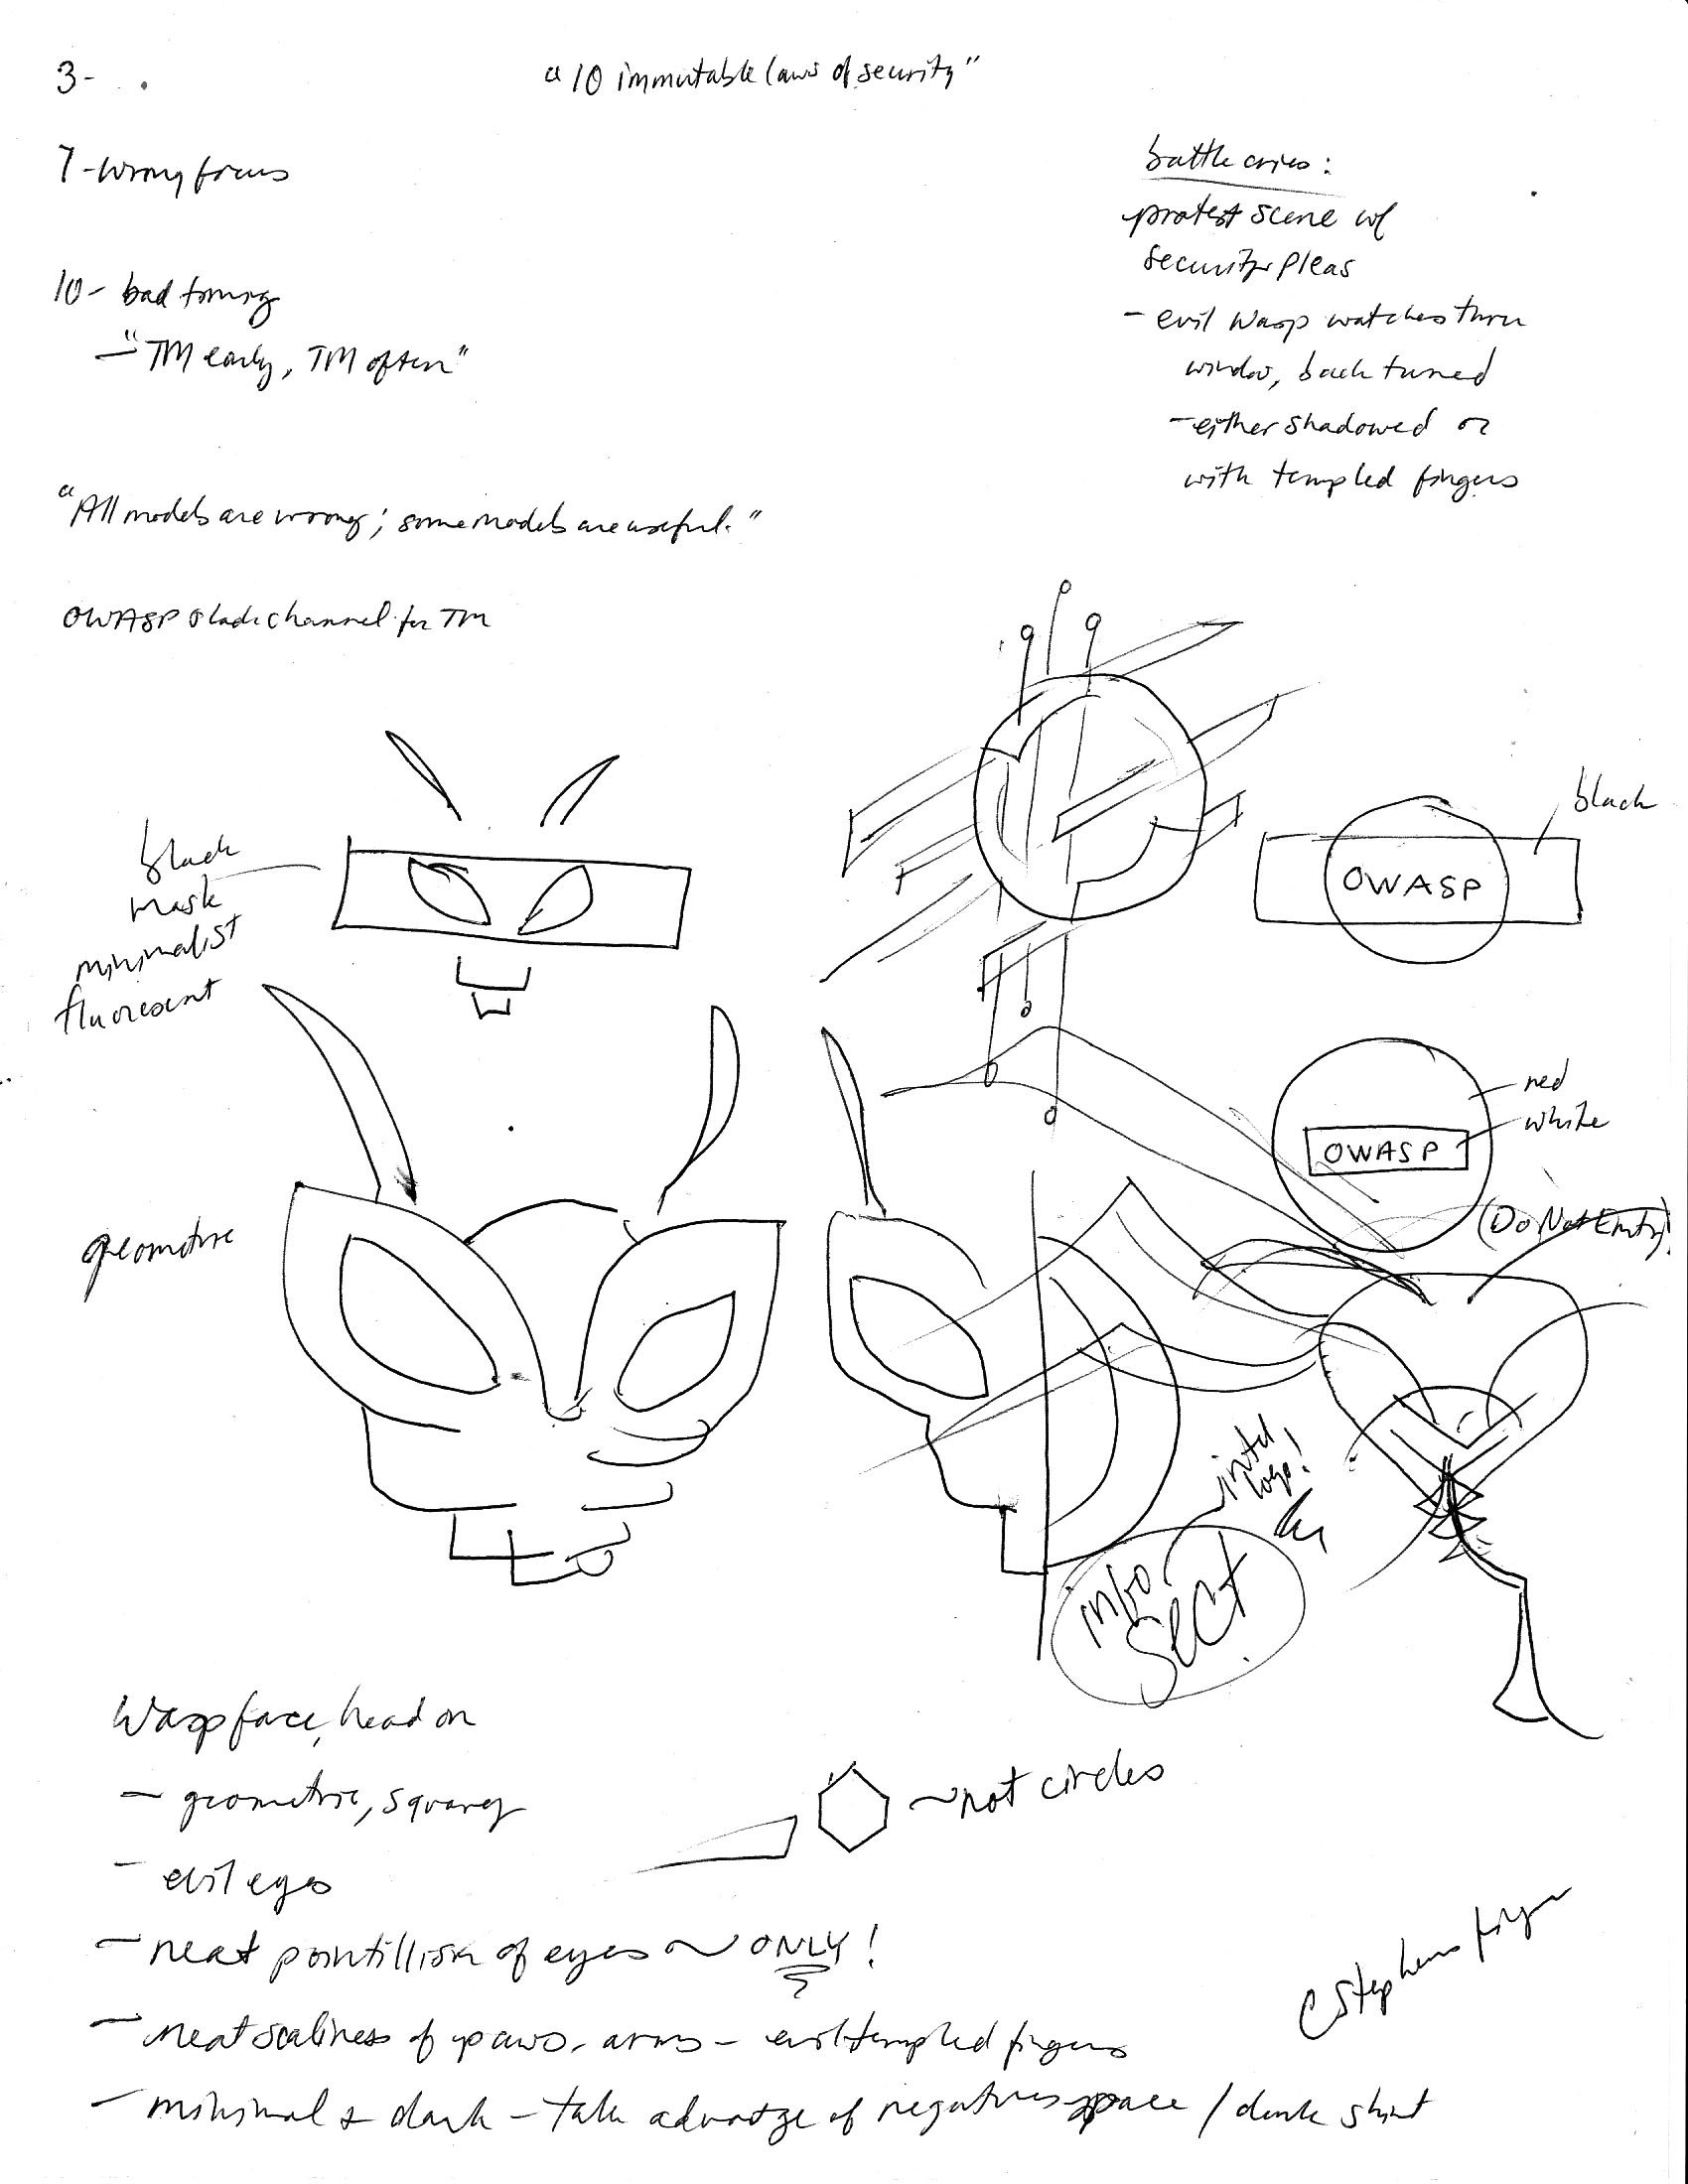 3-
"10 immutable laws of security"
7-wrong focus
10- bad timing
-"TM early, TM often"
"All models are wrong; some models are useful."
OWASP slack channel for TM
battle cries:
protest scene w/
security pleas
- evil wasp watches thru
window, back turned
- either shadowed or
with templed fingers
black
mask
minimalist
fluorescent
black
OWASP
red
white
OWASP
(Do Not Entry)
geometric
intel
logo!
info
Sect
Wasp face, head on
- geometric, squarey
- evil eyes
- neat pointillism of eyes ~ ONLY!
- neat scaliness of paws, arms - evil templed fingers
- minimal & dark - take advantge of negative space / dark shirt
~ not circles